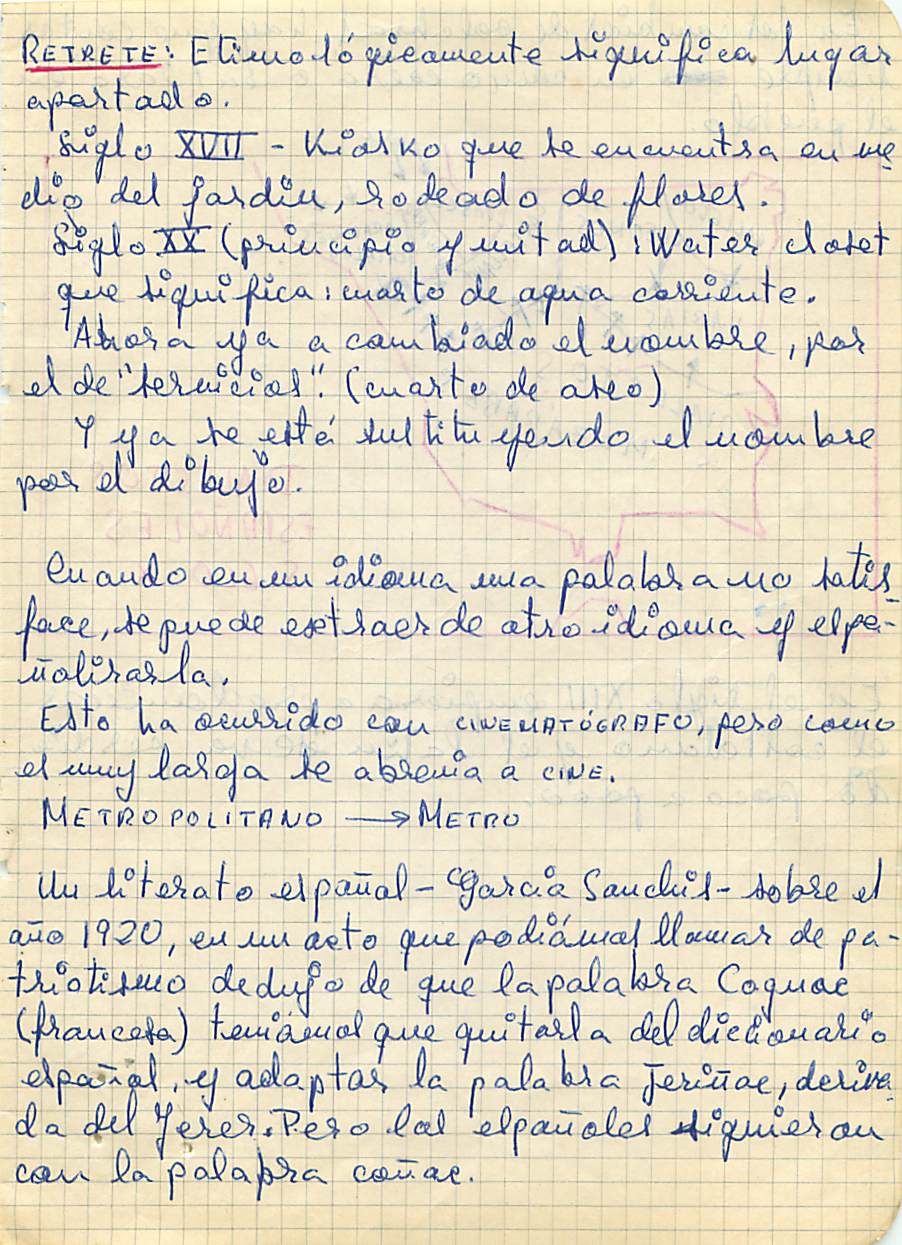 RETRETE: Etimológicamente significa lugar
apartado.
Siglo XVII - Kiosko que se encuentra en me-
dio del jardín, rodeado de flores.
Siglo XX (principio y mitad): Water closet
que significa: cuarto de agua corriente.
Ahora ya a cambiado el nombre, por
el de "servicios". (cuarto de aseo)
Y ya se está sustituyendo el nombre
por el dibujo.
Cuando en un idioma una palabra no satis-
face, se puede extraer de otro idioma y espa-
ñolizarla.
Esto ha ocurrido con CINEMATÓGRAFO, pero como
es muy larga se abrevia a CINE.
METROPOLITANO → METRO
Un literato español - García Sanchis - sobre el
año 1920, en un acto que podíamos llamar de pa-
triotismo dedujo de que la palabra Cognac
(francesa) teníamos que quitarla del diccionario
español, y adaptar la palabra Jeriñac, deriva-
da del Jerez. Pero los españoles siguieron
con la palabra coñac.